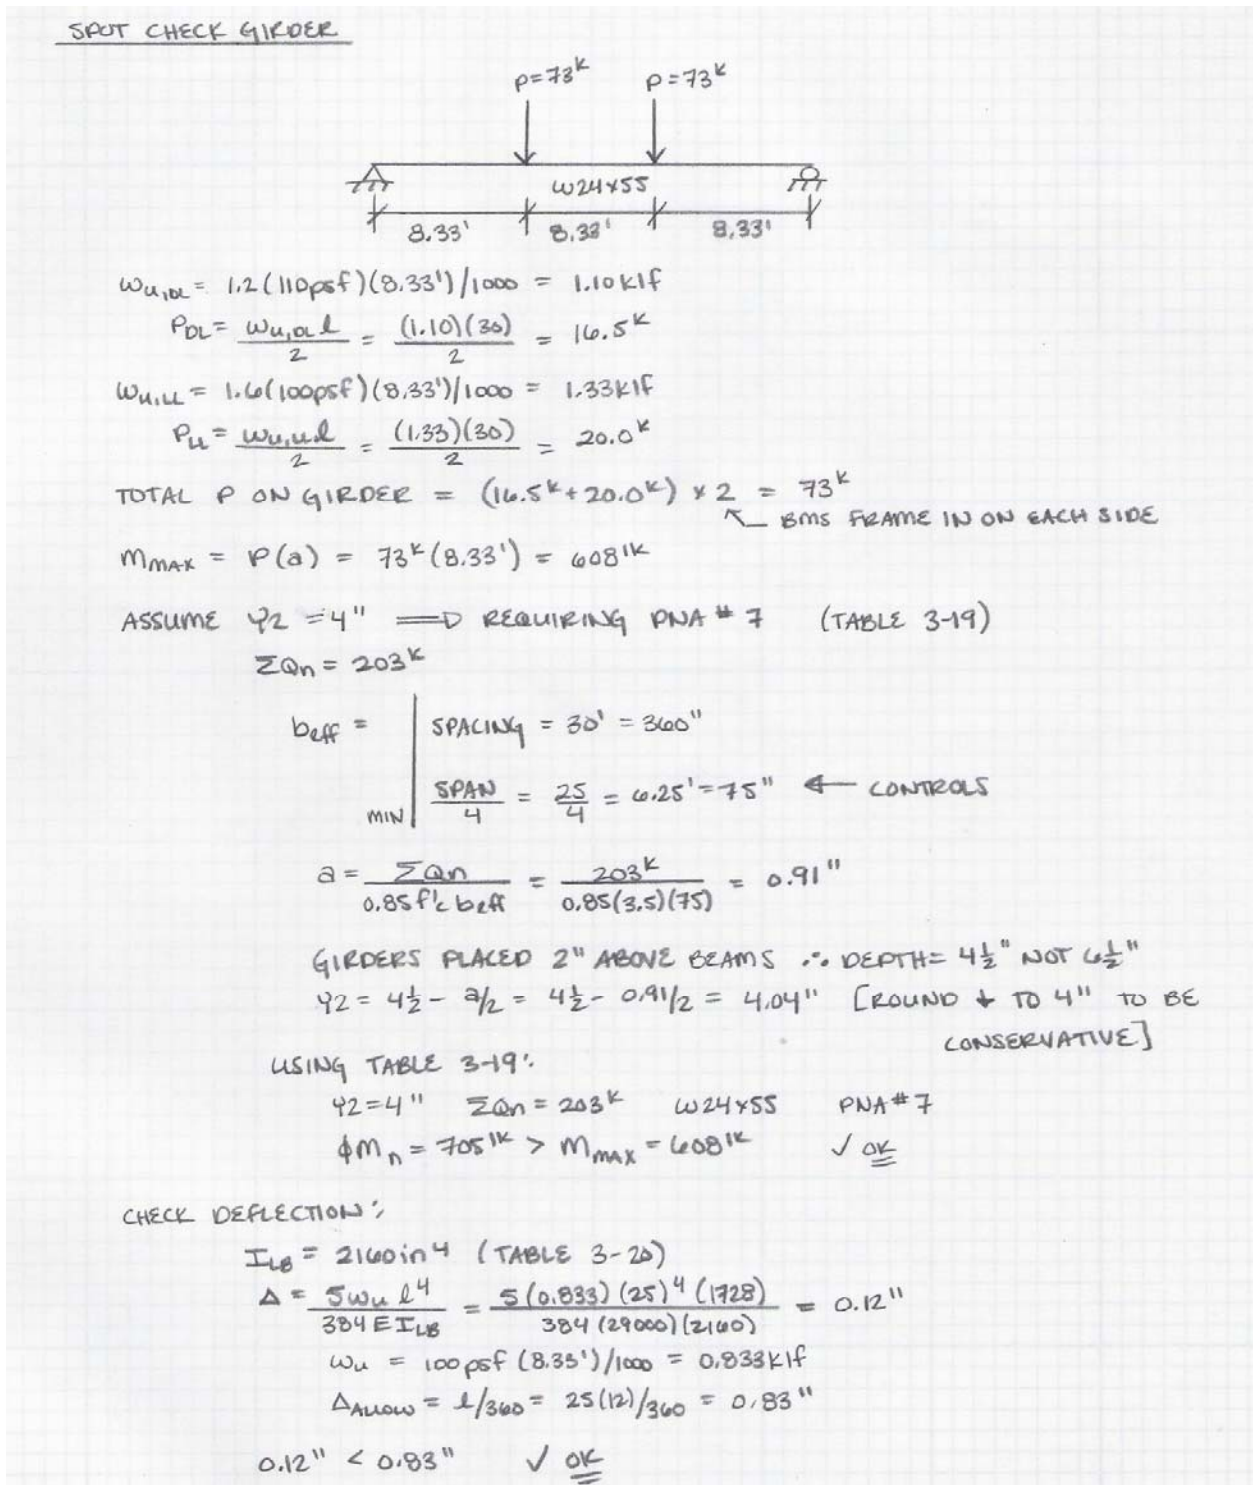 SPOT CHECK GIRDER
P=73ᵏ P=73ᵏ
W24x55
8.33' 8.33' 8.33'
Wu,DL = 1.2(110psf)(8.33')/1000 = 1.10 klf
PDL = Wu,DL l / 2 = (1.10)(30) / 2 = 16.5ᵏ
Wu,LL = 1.6(100psf)(8.33')/1000 = 1.33klf
PLL = Wu,LL l / 2 = (1.33)(30) / 2 = 20.0ᵏ
TOTAL P ON GIRDER = (16.5ᵏ+20.0ᵏ) x 2 = 73ᵏ
↖ BMS FRAME IN ON EACH SIDE
MMAX = P(a) = 73ᵏ(8.33') = 608'ᵏ
ASSUME Y2 = 4" ⟹ REQUIRING PNA #7 (TABLE 3-19)
ΣQn = 203ᵏ
beff = SPACING = 30' = 360"
MIN SPAN/4 = 25/4 = 6.25' = 75" ← CONTROLS
a = ΣQn / 0.85f'c beff = 203ᵏ / 0.85(3.5)(75) = 0.91"
GIRDERS PLACED 2" ABOVE BEAMS ∴ DEPTH = 4½" NOT 6½"
Y2 = 4½ - a/2 = 4½ - 0.91/2 = 4.04" [ROUND ↓ TO 4" TO BE
CONSERVATIVE]
USING TABLE 3-19:
Y2=4" ΣQn = 203ᵏ W24x55 PNA#7
ϕMn = 705'ᵏ > MMAX = 608'ᵏ ✓ OK
CHECK DEFLECTION:
ILB = 2160in⁴ (TABLE 3-20)
Δ = 5wu l⁴ / 384 E ILB = 5(0.833)(25)⁴(1728) / 384(29000)(2160) = 0.12"
Wu = 100psf (8.33')/1000 = 0.833klf
ΔALLOW = l/360 = 25(12)/360 = 0.83"
0.12" < 0.83" ✓ OK